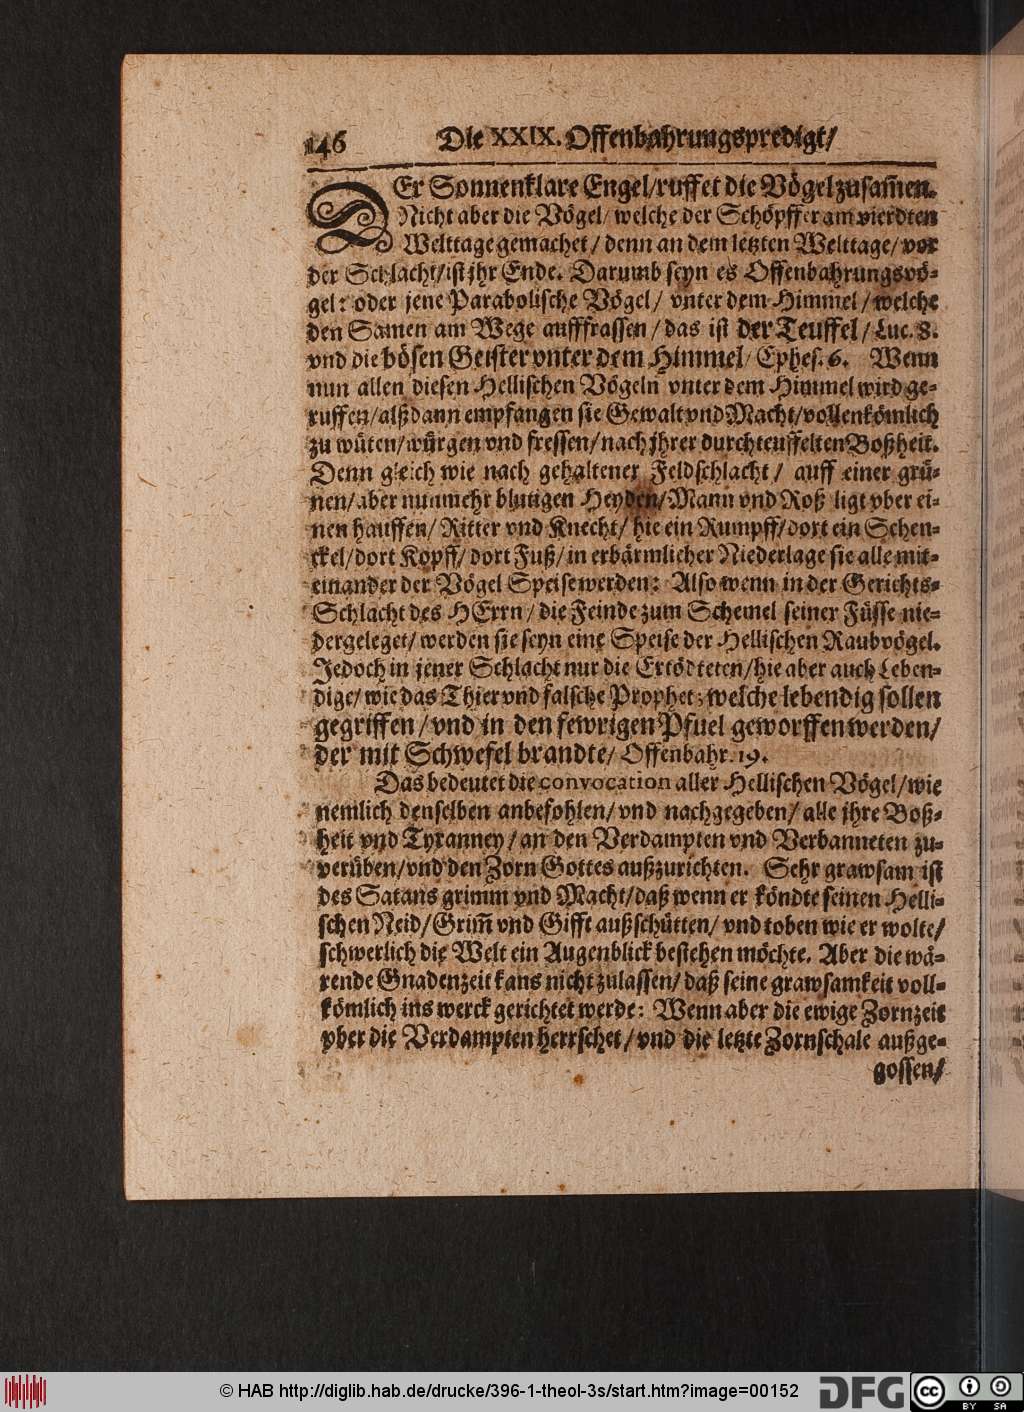 146 Die XXIX. Offenbahrungspredigt/
DEr Sonnenklare Engel/ruffet die Vögel zusam̃en.
Nicht aber die Vögel/ welche der Schöpffer am vierdten
Welttage gemachet/ denn an dem letzten Welttage/ vor
der Schlacht/ist jhr Ende. Darumb seyn es Offenbahrungsvö-
gel: oder jene Parabolische Vögel/ vnter dem Himmel/ welche
den Samen am Wege aufffrassen/ das ist der Teuffel/ Luc. 8.
vnd die bösen Geister vnter dem Himmel/ Ephes. 6. Wenn
nun allen diesen Hellischen Vögeln vnter dem Himmel wird ge-
ruffen/alßdann empfangen sie Gewalt vnd Macht/vollenkömlich
zu wüten/würgen vnd fressen/nach jhrer durchteuffelten Boßheit.
Denn gleich wie nach gehaltener Feldschlacht/ auff einer grü-
nen/aber nunmehr blutigen Heyden/Mann vnd Roß ligt vber ei-
nen hauffen/ Ritter vnd Knecht/ hie ein Rumpff/dort ein Schen-
ckel/dort Kopff/ dort Fuß/in erbärmlicher Niederlage sie alle mit-
einander der Vögel Speise werden: Also wenn in der Gerichts-
Schlacht des HErrn/ die Feinde zum Schemel seiner Füsse nie-
dergeleget/ werden sie seyn eine Speise der Hellischen Raubvögel.
Jedoch in jener Schlacht nur die Ertödteten/hie aber auch Leben-
dige/ wie das Thier vnd falsche Prophet; welche lebendig sollen
gegriffen/vnd in den fewrigen Pfuel geworffen werden/
der mit Schwefel brandte/ Offenbahr. 19.
Das bedeutet die convocation aller Hellischen Vögel/wie
nemlich denselben anbefohlen/vnd nachgegeben/ alle ihre Boß-
heit vnd Tyranney/an den Verdampten vnd Verbanneten zu-
verüben/vnd den Zorn Gottes außzurichten. Sehr grawsam ist
des Satans grimm vnd Macht/daß wenn er köndte seinen Helli-
schen Neid/Grim̃ vnd Gifft außschütten/ vnd toben wie er wolte/
schwerlich die Welt ein Augenblick bestehen möchte. Aber die wä-
rende Gnadenzeit kans nicht zulassen/ daß seine grawsamkeit voll-
kömlich ins werck gerichtet werde: Wenn aber die ewige Zornzeit
vber die Verdampten herrschet/ vnd die letzte Zornschale außge-
gossen/
© HAB http://diglib.hab.de/drucke/396-1-theol-3s/start.htm?image=00152
DFG
cc
BY SA